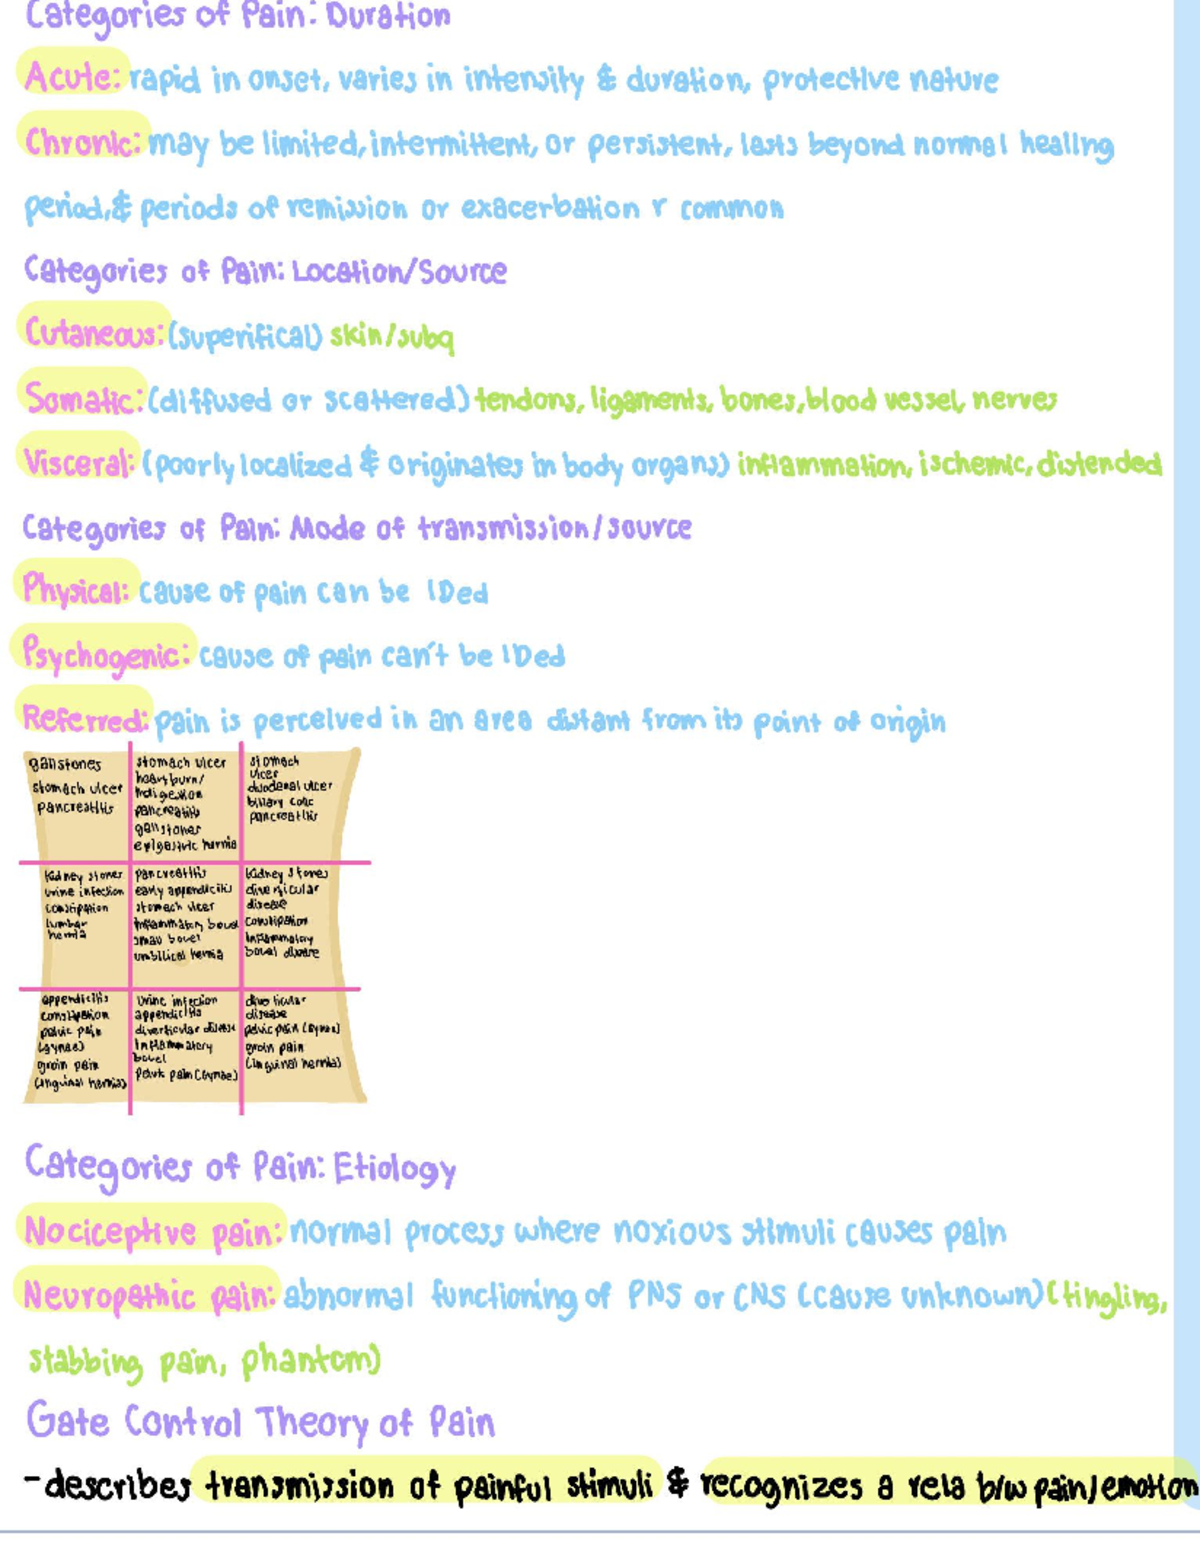 Categories of Pain: Duration
Acute: rapid in onset, varies in intensity & duration, protective nature
Chronic: may be limited, intermittent, or persistent, lasts beyond normal healing
period, & periods of remission or exacerbation r common
Categories of Pain: Location/Source
Cutaneous: (superifical) skin/subq
Somatic: (diffused or scattered) tendons, ligaments, bones, blood vessel, nerves
Visceral: (poorly localized & originates in body organs) inflammation, ischemic, distended
Categories of Pain: Mode of transmission/source
Physical: cause of pain can be IDed
Psychogenic: cause of pain can't be IDed
Referred: pain is perceived in an area distant from its point of origin
gallstones
stomach ulcer
pancreatitis
stomach ulcer
heartburn/
indigestion
pancreatitis
gallstones
epigastric hernia
stomach
ulcer
duodenal ulcer
biliary colic
pancreatitis
kidney stones
urine infection
constipation
lumbar
hernia
pancreatitis
early appendicitis
stomach ulcer
inflammatory bowel
small bowel
umbilical hernia
kidney stones
diverticular
disease
constipation
inflammatory
bowel disease
appendicitis
constipation
pelvic pain
(gynae)
groin pain
(inguinal hernia)
urine infection
appendicitis
diverticular disease
inflammatory
bowel
pelvic pain (gynae)
disease
pelvic pain (gynae)
groin pain
(inguinal hernia)
Categories of Pain: Etiology
Nociceptive pain: normal process where noxious stimuli causes pain
Neuropathic pain: abnormal functioning of PNS or CNS (cause unknown) (tingling,
stabbing pain, phantom)
Gate Control Theory of Pain
-describes transmission of painful stimuli & recognizes a rela b/w pain/emotion